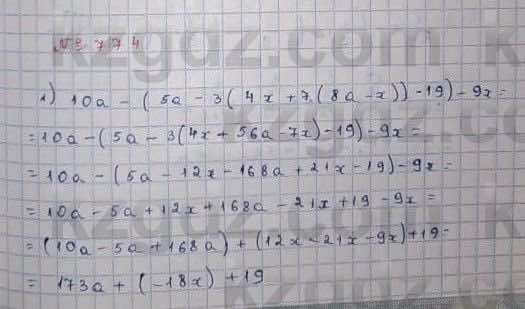 № 774
1) 10a - (5a - 3(4x + 7(8a - x)) - 19) - 9x =
= 10a - (5a - 3(4x + 56a - 7x) - 19) - 9x =
= 10a - (5a - 12x - 168a + 21x - 19) - 9x =
= 10a - 5a + 12x + 168a - 21x + 19 - 9x =
= (10a - 5a + 168a) + (12x - 21x - 9x) + 19 =
= 173a + (-18x) + 19
kzgdz.com